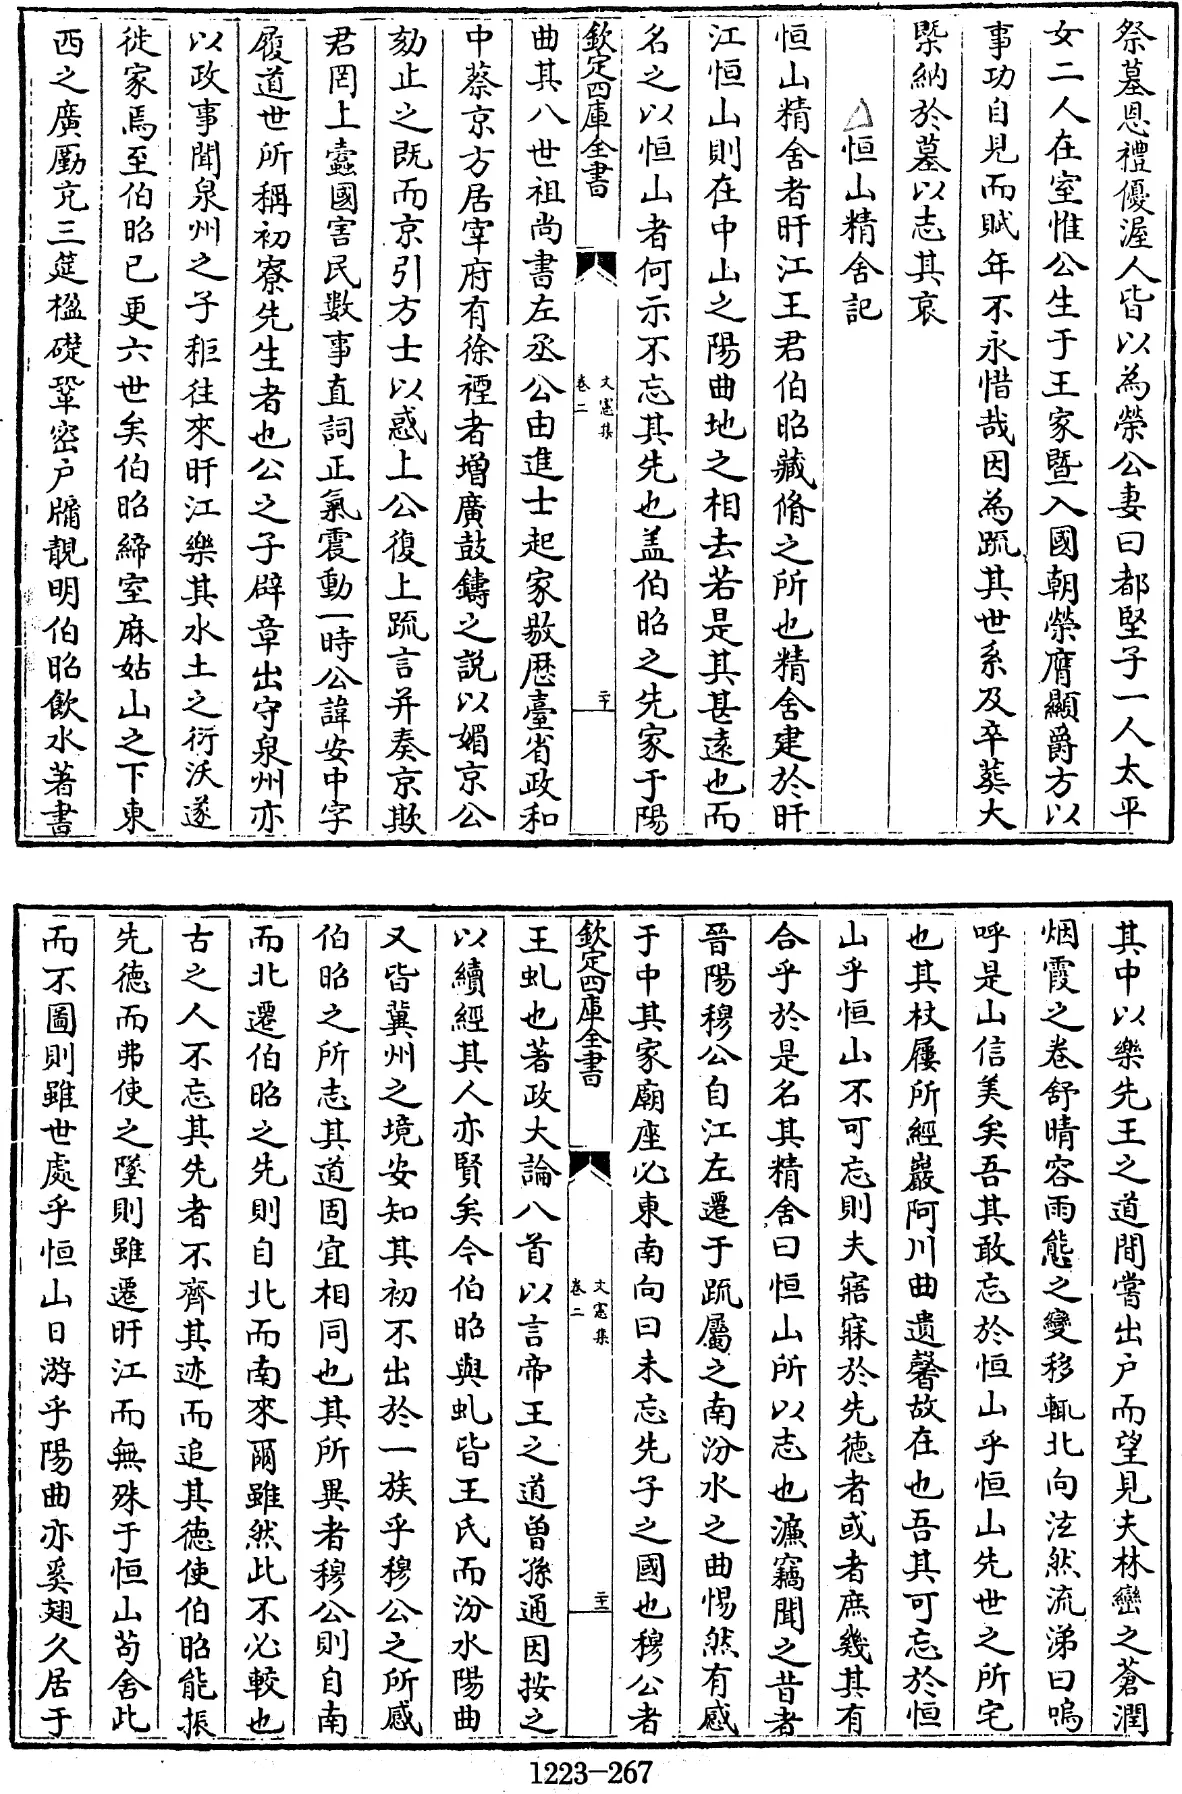 祭墓恩禮優渥人皆以為榮公妻曰都堅子一人太平
女二人在室惟公生于王家暨入國朝榮膺顯爵方以
事功自見而賦年不永惜哉因為疏其世系及卒葬大
槩納於墓以志其哀
恒山精舍記
恒山精舍者旴江王君伯昭藏脩之所也精舍建於旴
江恒山則在中山之陽曲地之相去若是其甚遠也而
名之以恒山者何示不忘其先也盖伯昭之先家于陽
欽定四庫全書
文憲集
卷二
二十
曲其八世祖尚書左丞公由進士起家敭歴臺省政和
中蔡京方居宰府有徐禋者增廣鼓鑄之説以媚京公
劾止之既而京引方士以惑上公復上疏言并奏京欺
君罔上蠧國害民數事直詞正氣震動一時公諱安中字
履道世所稱初寮先生者也公之子辟章出守泉州亦
以政事聞泉州之子秬往來旴江樂其水土之衍沃遂
徙家焉至伯昭已更六世矣伯昭締室麻姑山之下東
西之廣勵亢三筵楹礎鞏密户牖靚明伯昭飲水著書
其中以樂先王之道間嘗出户而望見夫林巒之蒼潤
烟霞之卷舒晴容雨態之變移輒北向泫然流涕曰嗚
呼是山信美矣吾其敢忘於恒山乎恒山先世之所宅
也其杖屨所經巖阿川曲遺馨故在也吾其可忘於恒
山乎恒山不可忘則夫寤寐於先德者或者庶幾其有
合乎於是名其精舍曰恒山所以志也濂竊聞之昔者
晉陽穆公自江左遷于疏屬之南汾水之曲惕然有感
于中其家廟座必東南向曰未忘先子之國也穆公者
欽定四庫全書
文憲集
卷二
二十一
王虬也著政大論八首以言帝王之道曽孫通因按之
以續經其人亦賢矣今伯昭與虬皆王氏而汾水陽曲
又皆冀州之境安知其初不出於一族乎穆公之所感
伯昭之所志其道固宜相同也其所異者穆公則自南
而北遷伯昭之先則自北而南來爾雖然此不必較也
古之人不忘其先者不齊其迹而追其德使伯昭能振
先德而弗使之墜則雖遷旴江而無殊于恒山苟舍此
而不圖則雖世處乎恒山日游乎陽曲亦奚翅久居于
1223-267